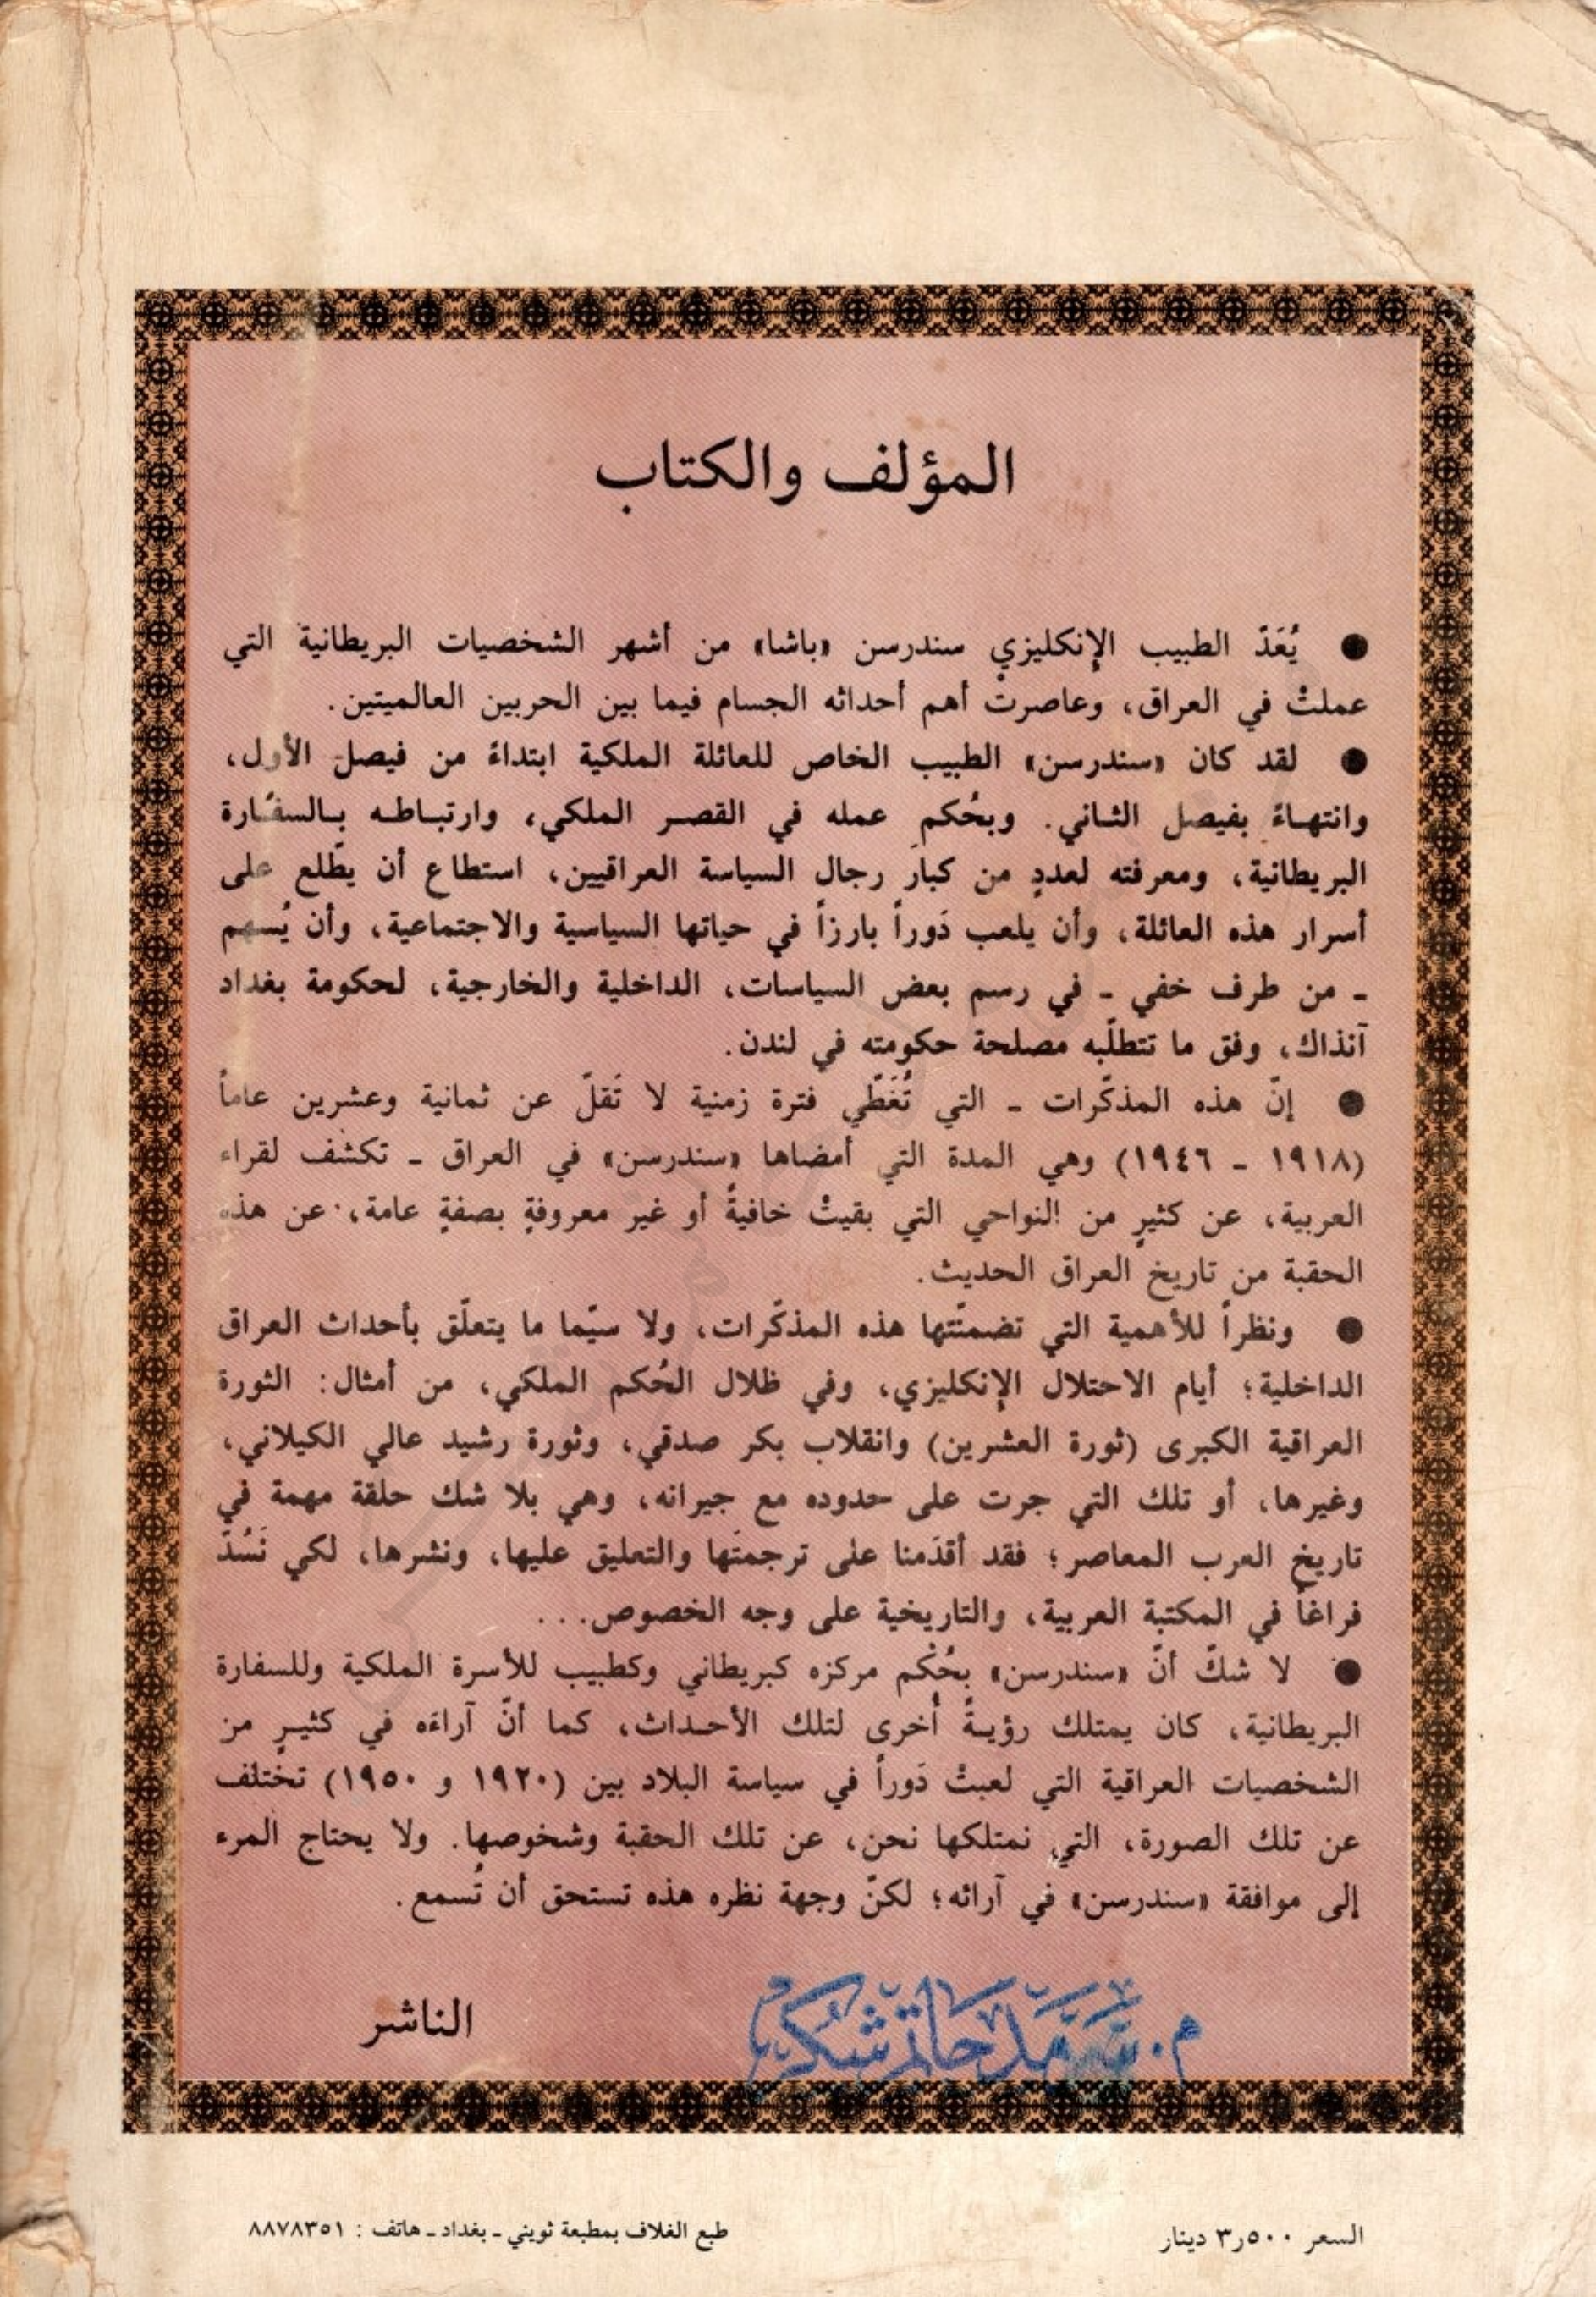 المؤلف والكتاب
● يُعَدّ الطبيب الإنكليزي سندرسن «باشا» من أشهر الشخصيات البريطانية التي
عملتْ في العراق، وعاصرتْ أهم أحداثه الجسام فيما بين الحربين العالميتين.
● لقد كان «سندرسن» الطبيب الخاص للعائلة الملكية ابتداءً من فيصل الأول،
وانتهاءً بفيصل الثاني. وبحُكم عمله في القصر الملكي، وارتباطه بالسفارة
البريطانية، ومعرفته لعددٍ من كبار رجال السياسة العراقيين، استطاع أن يطّلع على
أسرار هذه العائلة، وأن يلعب دَوراً بارزاً في حياتها السياسية والاجتماعية، وأن يُسهم
ـ من طرف خفي ـ في رسم بعض السياسات، الداخلية والخارجية، لحكومة بغداد
آنذاك، وفق ما تتطلّبه مصلحة حكومته في لندن.
● إنّ هذه المذكّرات ـ التي تُغَطّي فترة زمنية لا تَقلّ عن ثمانية وعشرين عاماً
(١٩١٨ ـ ١٩٤٦) وهي المدة التي أمضاها «سندرسن» في العراق ـ تكشف لقراء
العربية، عن كثيرٍ من النواحي التي بقيتْ خافيةً أو غير معروفةٍ بصفةٍ عامة، عن هذه
الحقبة من تاريخ العراق الحديث.
● ونظراً للأهمية التي تضمنّتها هذه المذكّرات، ولا سيّما ما يتعلّق بأحداث العراق
الداخلية؛ أيام الاحتلال الإنكليزي، وفي ظلال الحُكم الملكي، من أمثال: الثورة
العراقية الكبرى (ثورة العشرين) وانقلاب بكر صدقي، وثورة رشيد عالي الكيلاني،
وغيرها، أو تلك التي جرت على حدوده مع جيرانه، وهي بلا شك حلقة مهمة في
تاريخ العرب المعاصر؛ فقد أقدَمنا على ترجمتَها والتعليق عليها، ونشرها، لكي نَسُدّ
فراغاً في المكتبة العربية، والتاريخية على وجه الخصوص...
● لا شكّ أنّ «سندرسن» بحُكْم مركزه كبريطاني وكطبيب للأسرة الملكية وللسفارة
البريطانية، كان يمتلك رؤيةً أخرى لتلك الأحداث، كما أنّ آراءَه في كثيرٍ من
الشخصيات العراقية التي لعبتْ دَوراً في سياسة البلاد بين (١٩٢٠ و ١٩٥٠) تختلف
عن تلك الصورة، التي نمتلكها نحن، عن تلك الحقبة وشخوصها. ولا يحتاج المرء
إلى موافقة «سندرسن» في آرائه؛ لكنّ وجهة نظره هذه تستحق أن تُسمع.
الناشر
السعر ٣٫٥٠٠ دينار
طبع الغلاف بمطبعة ثويني ـ بغداد ـ هاتف : ٨٨٧٨٣٥١